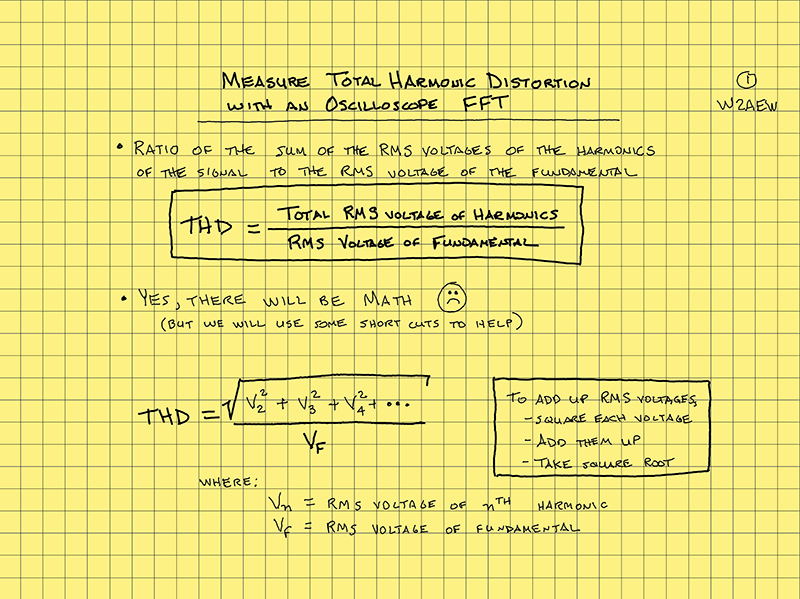 MEASURE TOTAL HARMONIC DISTORTION
WITH AN OSCILLOSCOPE FFT
①
W2AEW
• RATIO OF THE SUM OF THE RMS VOLTAGES OF THE HARMONICS
OF THE SIGNAL TO THE RMS VOLTAGE OF THE FUNDAMENTAL
THD = TOTAL RMS VOLTAGE OF HARMONICS / RMS VOLTAGE OF FUNDAMENTAL
• YES, THERE WILL BE MATH ☹
(BUT WE WILL USE SOME SHORT CUTS TO HELP)
THD = √(V₂² + V₃² + V₄² + ···) / V_F
TO ADD UP RMS VOLTAGES,
- SQUARE EACH VOLTAGE
- ADD THEM UP
- TAKE SQUARE ROOT
WHERE:
Vₙ = RMS VOLTAGE OF nᵀᴴ HARMONIC
V_F = RMS VOLTAGE OF FUNDAMENTAL